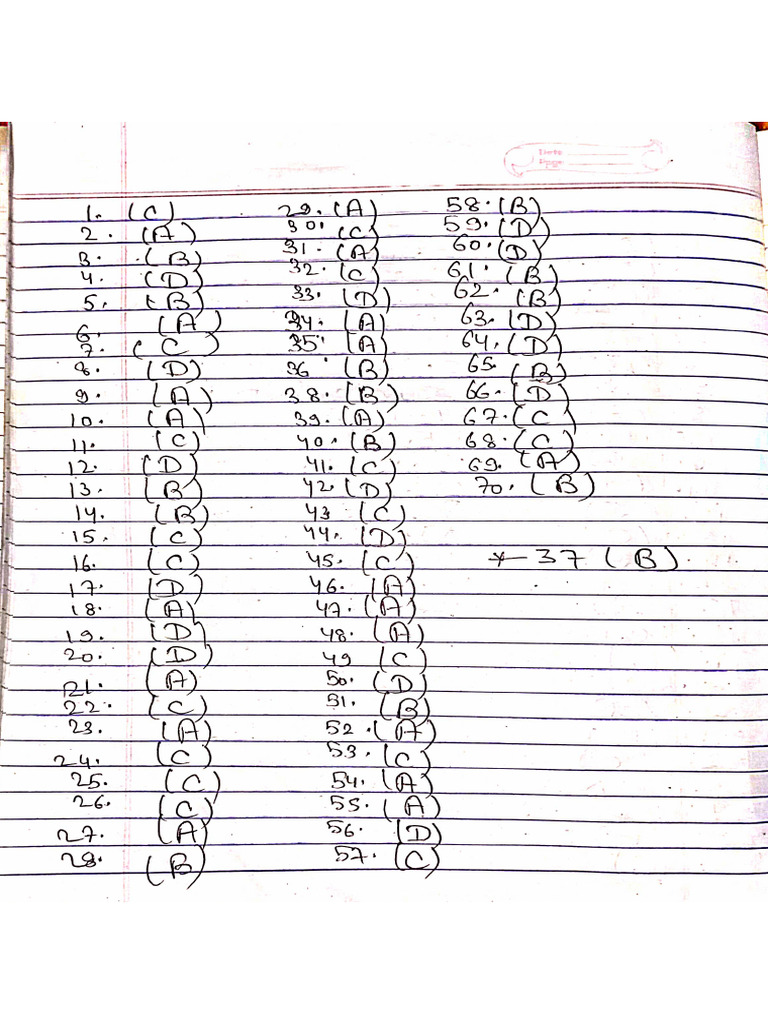 Date
Page
1. (C)
2. (A)
3. (B)
4. (D)
5. (B)
6. (A)
7. (C)
8. (D)
9. (A)
10. (A)
11. (C)
12. (D)
13. (B)
14. (B)
15. (C)
16. (C)
17. (D)
18. (A)
19. (D)
20. (D)
21. (A)
22. (C)
23. (A)
24. (C)
25. (C)
26. (C)
27. (A)
28. (B)
29. (A)
30. (C)
31. (A)
32. (C)
33. (D)
34. (A)
35. (A)
36 (B)
38. (B)
39. (A)
40. (B)
41. (C)
42. (D)
43 (C)
44. (D)
45. (C)
46. (A)
47. (A)
48. (A)
49 (C)
50. (D)
51. (B)
52. (A)
53. (C)
54. (A)
55. (A)
56. (D)
57. (C)
58. (B)
59. (D)
60. (D)
61. (B)
62. (B)
63. (D)
64. (D)
65. (B)
66. (D)
67. (C)
68. (C)
69. (A)
70. (B)
* 37 (B)